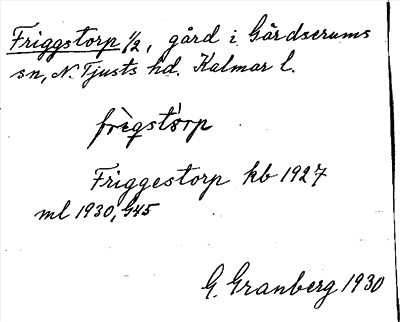 Friggstorp 1/2, gård i Gårdserums
sn, N. Tjusts hd. Kalmar l.
frìgstòrp
Friggestorp kb 1927
ml 1930, G45
G. Granberg 1930